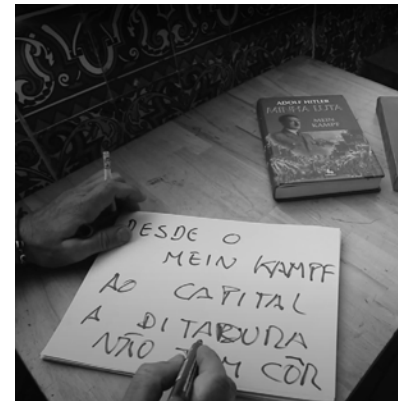 ADOLF HITLER
MINHA LUTA
MEIN
KAMPF
DESDE O
MEIN KAMPF
AO CAPITAL
A DITADURA
NÃO TEM CÔR